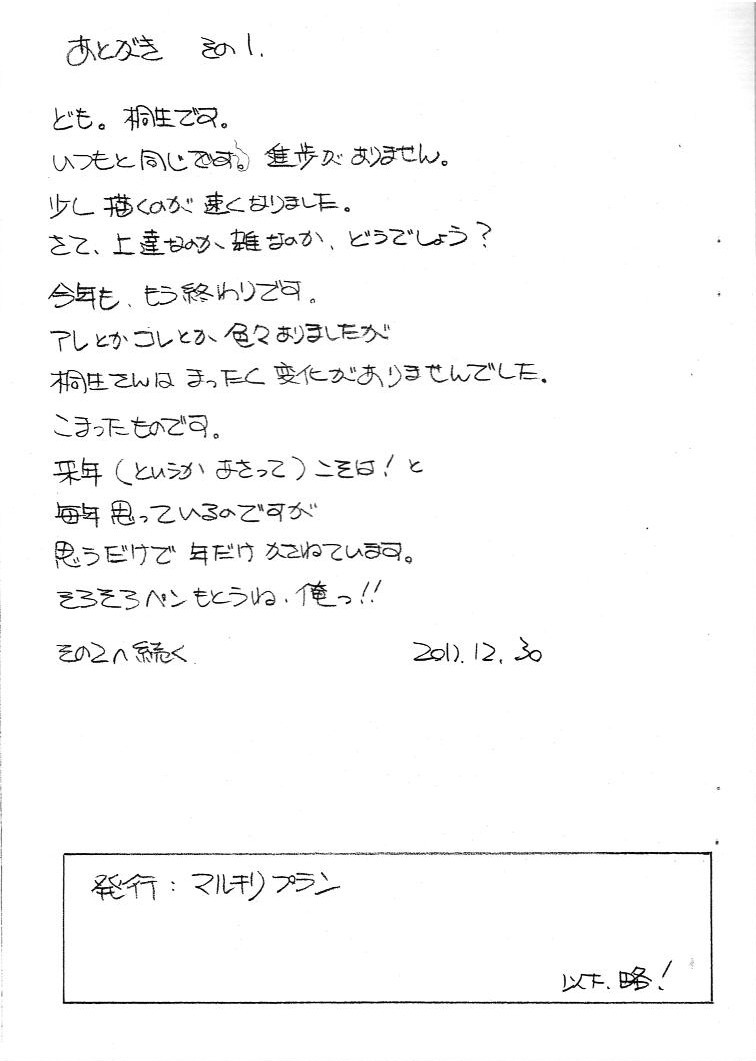 あとがき その1.
ども。桐生です。
いつもと同じです。進歩がありません。
少し描くのが速くなりました。
さて、上達なのか、雑なのか、どうでしょう?
今年も、もう終わりです。
アレとかコレとか、色々ありましたが
桐生さんは まったく変化がありませんでした。
こまったものです。
来年(というか あさって)こそは!と
毎年思っているのですが
思うだけで 年だけ かさねています。
そろそろペンもとうね、俺っ!!
その2へ続く 2011.12.30
発行:マルチリプラン
以下、略!